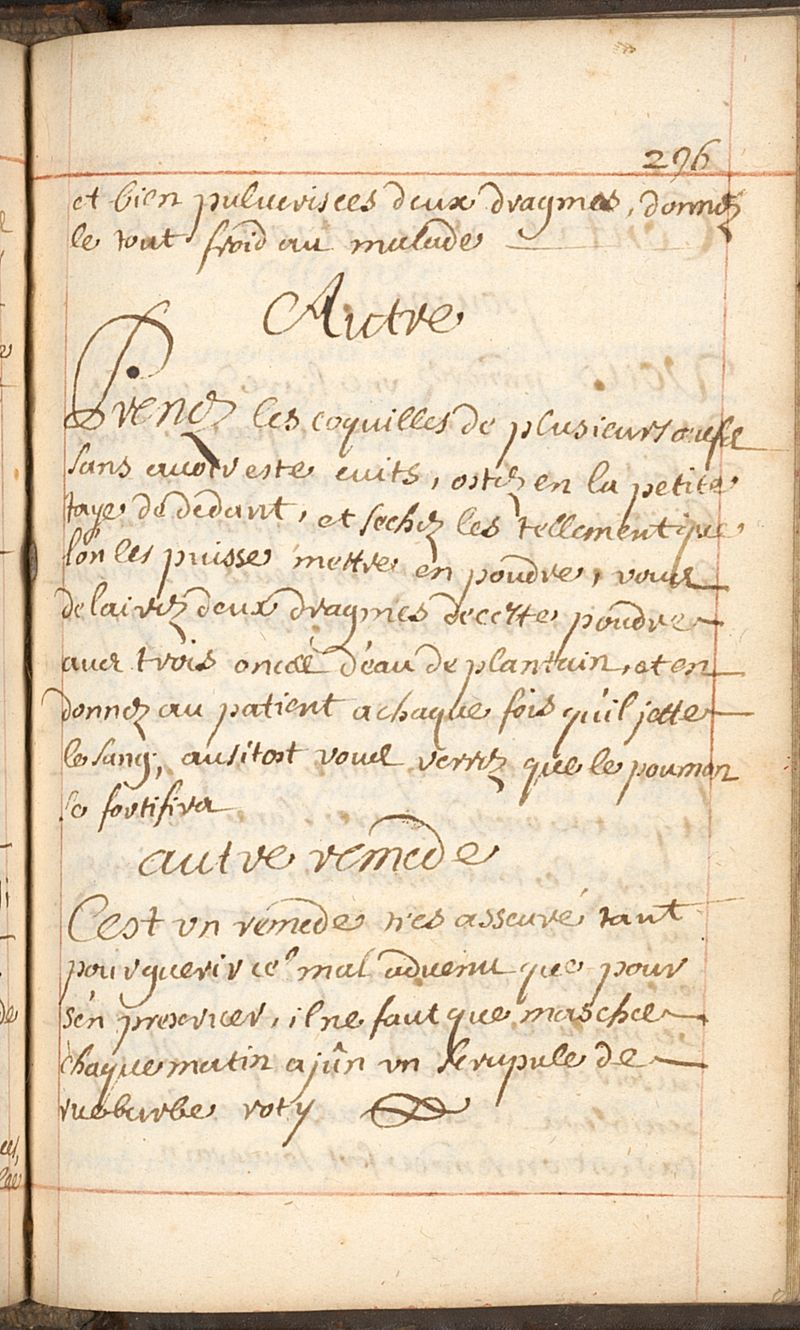 296
et bien pulverisées deux dragmes, donnez
le tout froid au malade
Autre
Prenez les coquilles de plusieurs oeufs
sans avoir esté cuits, ostez en la petite
taye de dedant, et sechez les tellement que
l'on les puisse mettre en poudre, vous
delairez deux dragmes de cette poudre
avec trois onces d'eau de plantain, et en
donnez au patient a chaque fois qu'il jette
le sang, ausitost vous verrez que le poumon
se fortifira
autre remede
C'est un remede tres asseuré tant
pour guerir ce mal advenu que pour
s'en preserver, il ne faut que mascher
chaque matin a jûn un scrupule de
ruebarbe roty